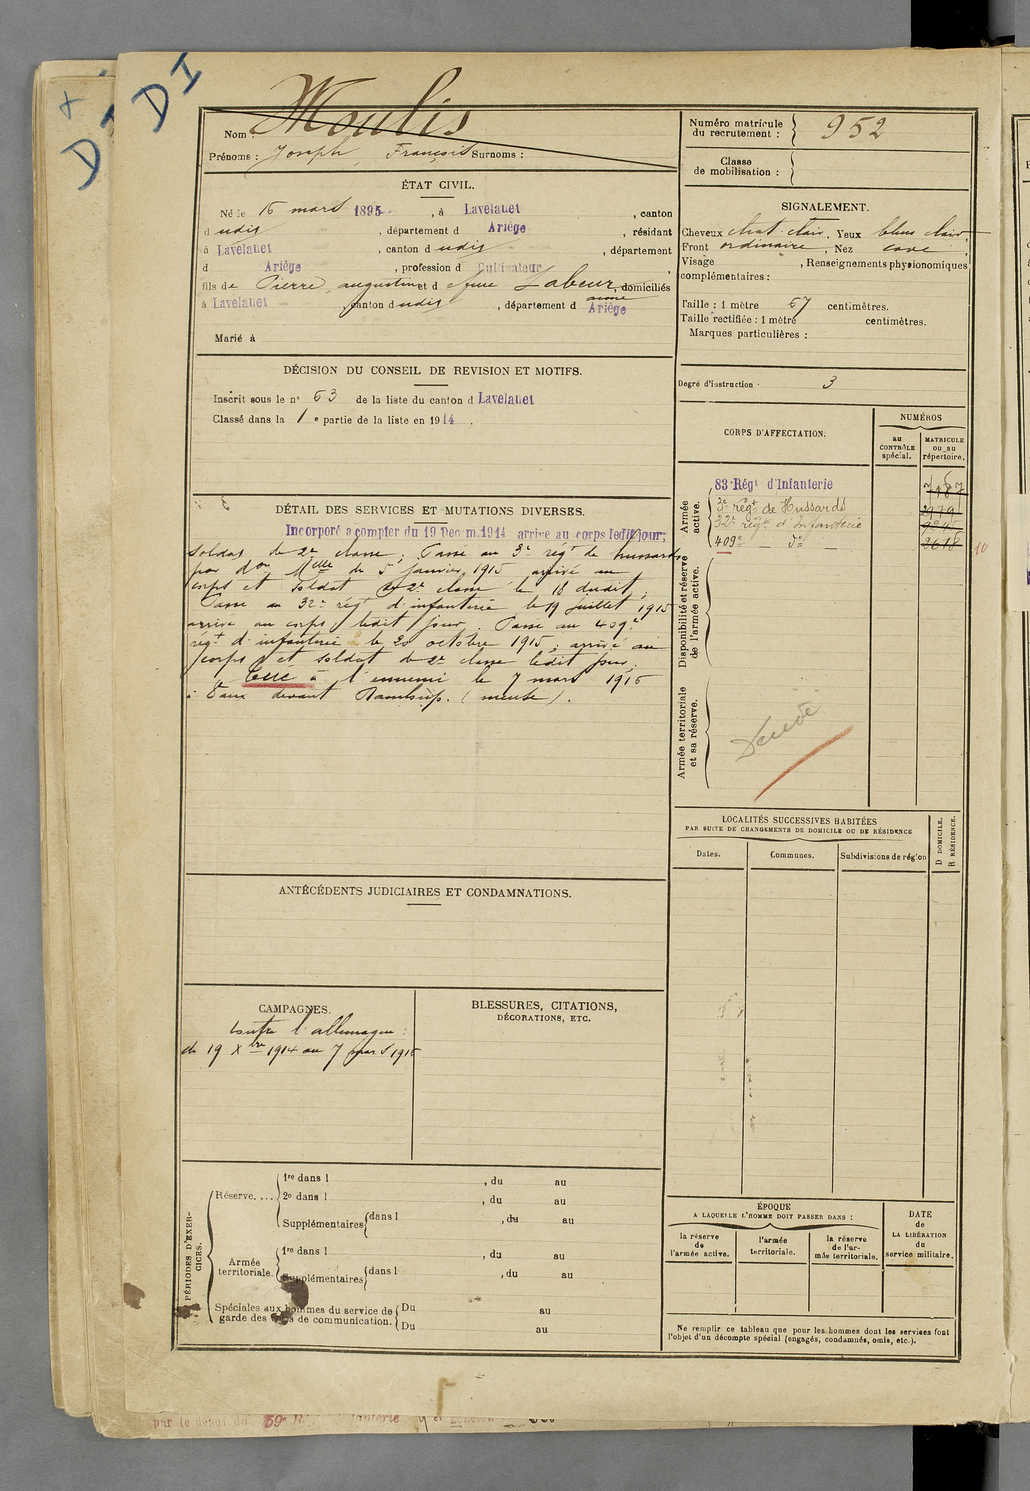 DI
DI
Nom : Moulis
Prénoms : Joseph, François Surnoms :
Numéro matricule du recrutement : 952
Classe de mobilisation :
ÉTAT CIVIL.
Né le 16 mars 1895, à Lavelanet, canton
dudis, département d Ariège, résidant
à Lavelanet, canton dudis, département
d Ariège, profession d Cultivateur
fils de Pierre, augustin et d Anne Labeur, domiciliés
à Lavelanet canton dudis, département d Ariège
Marié à
SIGNALEMENT.
Cheveux chat. clair, Yeux bleus clair,
Front ordinaire, Nez cave
Visage , Renseignements physionomiques
complémentaires :
Taille : 1 mètre 67 centimètres.
Taille rectifiée : 1 mètre centimètres.
Marques particulières :
Degré d'instruction 3
DÉCISION DU CONSEIL DE REVISION ET MOTIFS.
Inscrit sous le n° 63 de la liste du canton d Lavelanet
Classé dans la 1e partie de la liste en 1914.
CORPS D'AFFECTATION.
NUMÉROS
au CONTRÔLE spécial.
MATRICULE ou au répertoire.
Armée active.
83 Régt d'Infanterie
3e régt de Hussards
32e régt d'Infanterie
409e — do —
10
Disponibilité et réserve de l'armée active.
Armée territoriale et sa réserve.
DÉTAIL DES SERVICES ET MUTATIONS DIVERSES.
Incorporé a compter du 19 Decem. 1914 arrive au corps ledit jour;
soldat de 2e classe. Passé au 3e régt de hussards
par don Melle du 5 janvier 1915 arrivé au
corps et soldat de 2e classe le 18 dudit,
Passé au 32e régt d'infanterie le 19 juillet 1915
arrivé au corps ledit jour. Passé au 409e
régt d'infanterie le 20 octobre 1915, arrivé au
corps et soldat de 2e classe ledit jour.
Tué à l'ennemi le 7 mars 1916
à Vaux devant Damloup. (meuse).
LOCALITÉS SUCCESSIVES HABITÉES
PAR SUITE DE CHANGEMENTS DE DOMICILE OU DE RÉSIDENCE
Dates.
Communes.
Subdivisions de région
D DOMICILE.
R RÉSIDENCE.
ANTÉCÉDENTS JUDICIAIRES ET CONDAMNATIONS.
CAMPAGNES.
Contre l'allemagne :
du 19 Xbre 1914 au 7 mars 1916
BLESSURES, CITATIONS,
DÉCORATIONS, ETC.
PÉRIODES D'EXERCICES.
Réserve....
1re dans l , du au
2e dans l , du au
Supplémentaires dans l , du au
Armée territoriale.
1re dans l , du au
Supplémentaires dans l , du au
Spéciales aux hommes du service de
garde des voies de communication.
Du au
Du au
ÉPOQUE
A LAQUELLE L'HOMME DOIT PASSER DANS :
la réserve de l'armée active.
l'armée territoriale.
la réserve de l'armée territoriale.
DATE
de
LA LIBÉRATION
du
service militaire.
Ne remplir ce tableau que pour les hommes dont les services font
l'objet d'un décompte spécial (engagés, condamnés, omis, etc.).